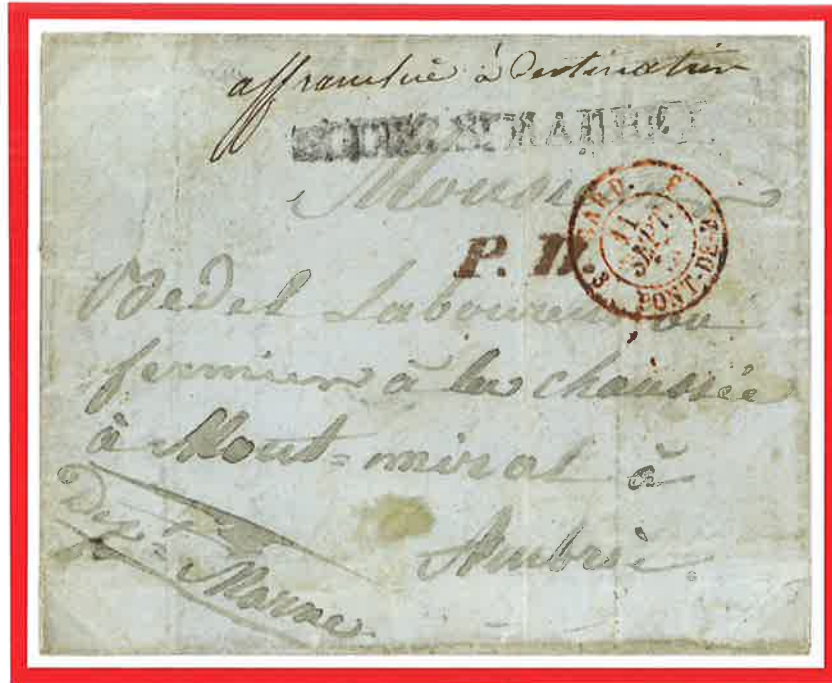 affranchie à destination
Monsieur
P. D.
SARD. 
11
SEPT.
PONT-DE-B
Bedel Laboureur ou
fermier à la chaussée
à Mont=miral à
Dep.t Marne